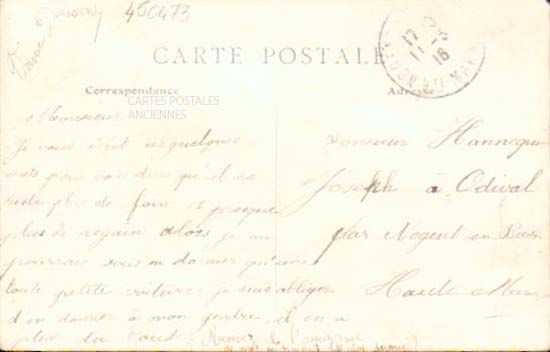 450473
CARTE POSTALE
17
11 - 3
16
Correspondance
Adresse
CARTES POSTALES
ANCIENNES
Monsieur
Je vous écrit ces quelques
mots pour vous dire qu'il ne
reste plus de foin et presque
plus de regain alors je ne
pourrais vous en donner qu'une
toute petite voiture je suis obliger
d'en donner à mon gendre il en a
plus du tout.
Monsieur Hannequin
Joseph à Odival
par Nogent en Bas
Haute Marne